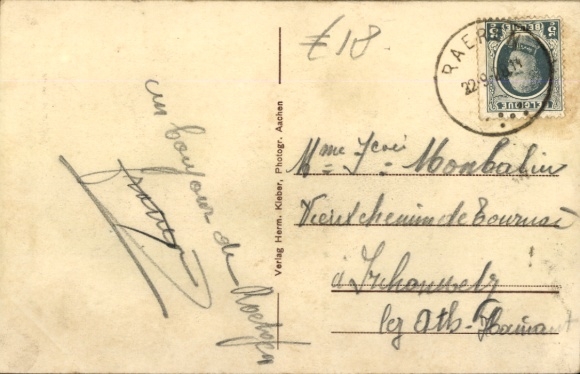 € 18
un bonjour de Roetgen
Verlag Herm. Kleber, Photogr. Aachen
RAEREN
22-9
BELGIQUE
5
Mme
Vieux chemin de Tournai
à
lez Ath - Hainaut